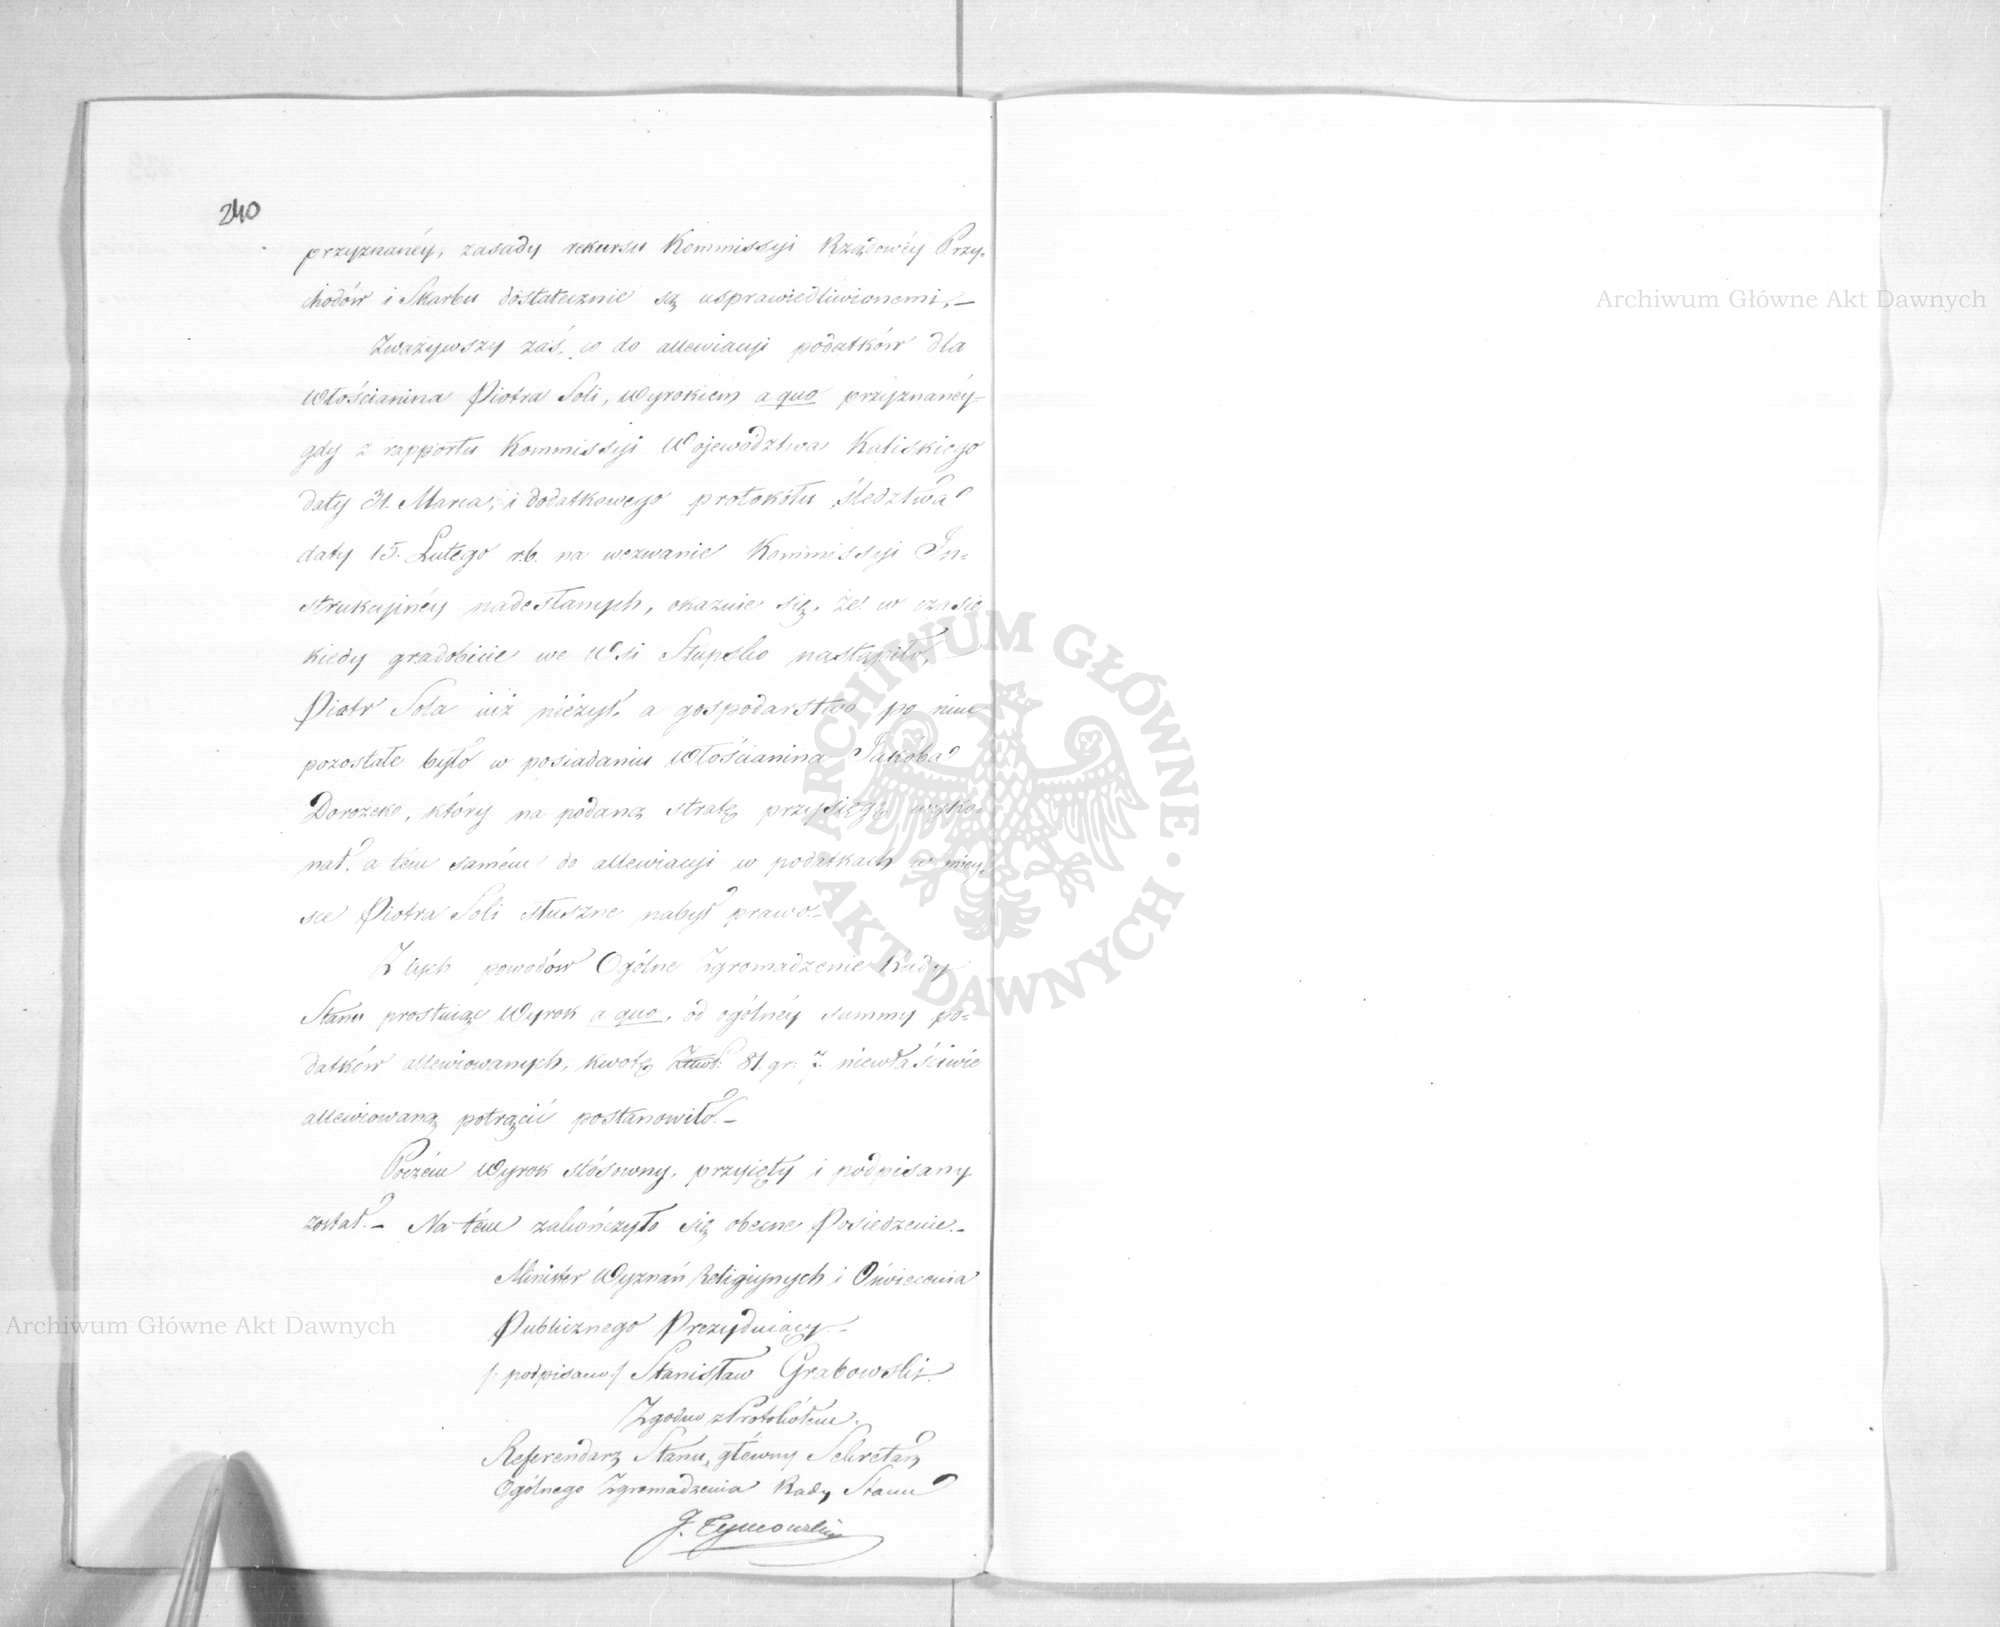 240
przyznanéy, zasady rekursu Kommissyi Rządowéy Przy-
chodów i Skarbu dostatecznie są usprawiedliwionemi,—
Zważywszy zaś, co do allewiacyi podatków dla
Włościanina Piotra Soli, Wyrokiem a quo przyznanéy
gdy z rapportu Kommissyi Województwa Kaliskiego
daty 31. Marca, i dodatkowego protokółu śledztwa
daty 15. Lutego r.b. na wezwanie Kommissyi In=
strukcyinéy nadesłanych, okazuie się, że w czasie
kiedy gradobicie we Wsi Słupsko nastąpiło,
Piotr Sola iuż nieżył, a gospodarstwo po nim
pozostałe było w posiadaniu Włościanina Jakóba
Dorożeko, który na podaną stratę przysięgę wyko=
nał, a tém samém do allewiacyi w podatkach w miey=
sce Piotra Soli słuszne nabył prawo.—
Z tych powodów Ogólne Zgromadzenie Rady
Stanu prostuiąc Wyrok a quo, od ogólnéy summy po=
datków allewiowanych, kwotę 81. gr: 7. niewłaściwie
allewiowaną potrącić postanowiło.—
Poczém Wyrok stósowny, przyięty i podpisany
został.— Na tém zakończyło się obecne Posiedzenie.—
Minister Wyznań Religiynych i Oświecenia
Publicznego Prezyduiący.—
/: podpisano :/ Stanisław Grabowski.
Zgodno z Protokółem.
Referendarz Stanu, główny Sekretarz
Ogólnego Zgromadzenia Rady Stanu
J. Tymowski
Archiwum Główne Akt Dawnych
Archiwum Główne Akt Dawnych
ARCHIWUM GŁÓWNE · AKT DAWNYCH ·